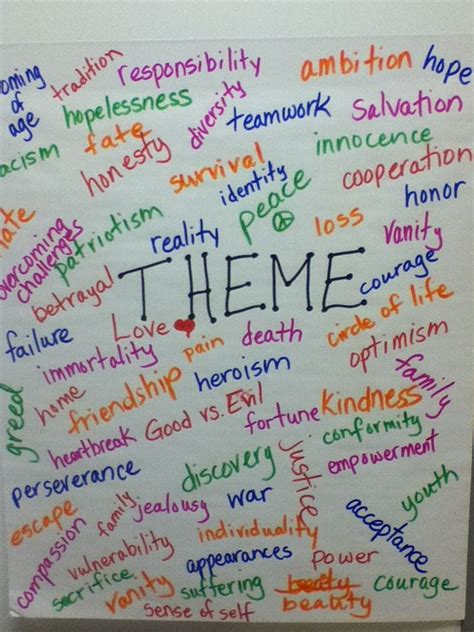 coming
of
age
tradition
responsibility
ambition
hope
hopelessness
diversity
teamwork
salvation
racism
fate
honesty
survival
innocence
identity
cooperation
hate
peace
honor
overcoming
challenges
patriotism
reality
loss
vanity
THEME
courage
betrayal
circle of life
failure
Love
pain
death
optimism
immortality
heroism
family
home
friendship
Good vs. Evil
fortune
kindness
greed
heartbreak
conformity
empowerment
perseverance
discovery
justice
youth
escape
family
jealousy
war
acceptance
compassion
individuality
vulnerability
appearances
power
sacrifice.
vanity
suffering
beatty
courage
sense of self
beauty